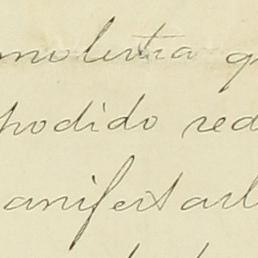 molestia q
podido red
anifestarl